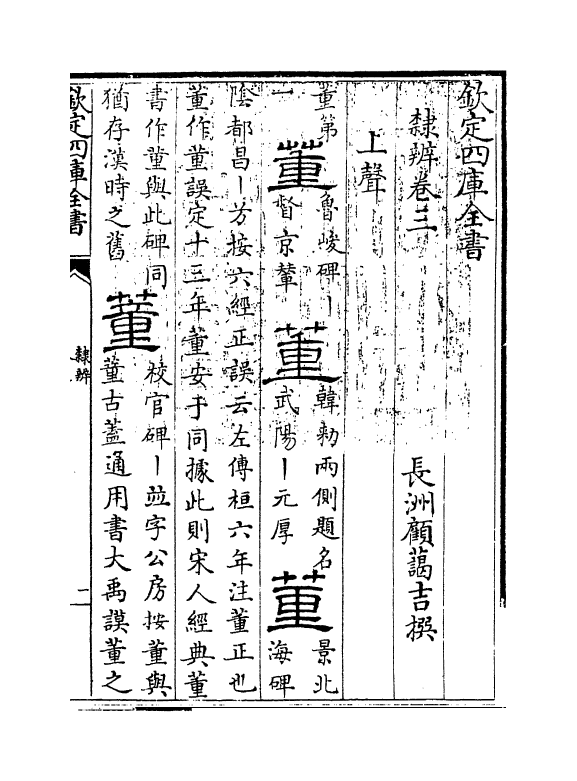 欽定四庫全書
隸辨卷三
長洲顧藹吉撰
上聲
董第
一
董
魯峻碑丨
督京輦
董
韓勑兩側題名
武陽丨元厚
董
景北
海碑
陰都昌丨芳按六經正誤云左傳桓六年注董正也
董作董誤定十三年董安于同據此則宋人經典董
書作董與此碑同
猶存漢時之舊
董
校官碑丨竝字公房按董與
董古蓋通用書大禹謨董之
欽定四庫全書
隸辨
二